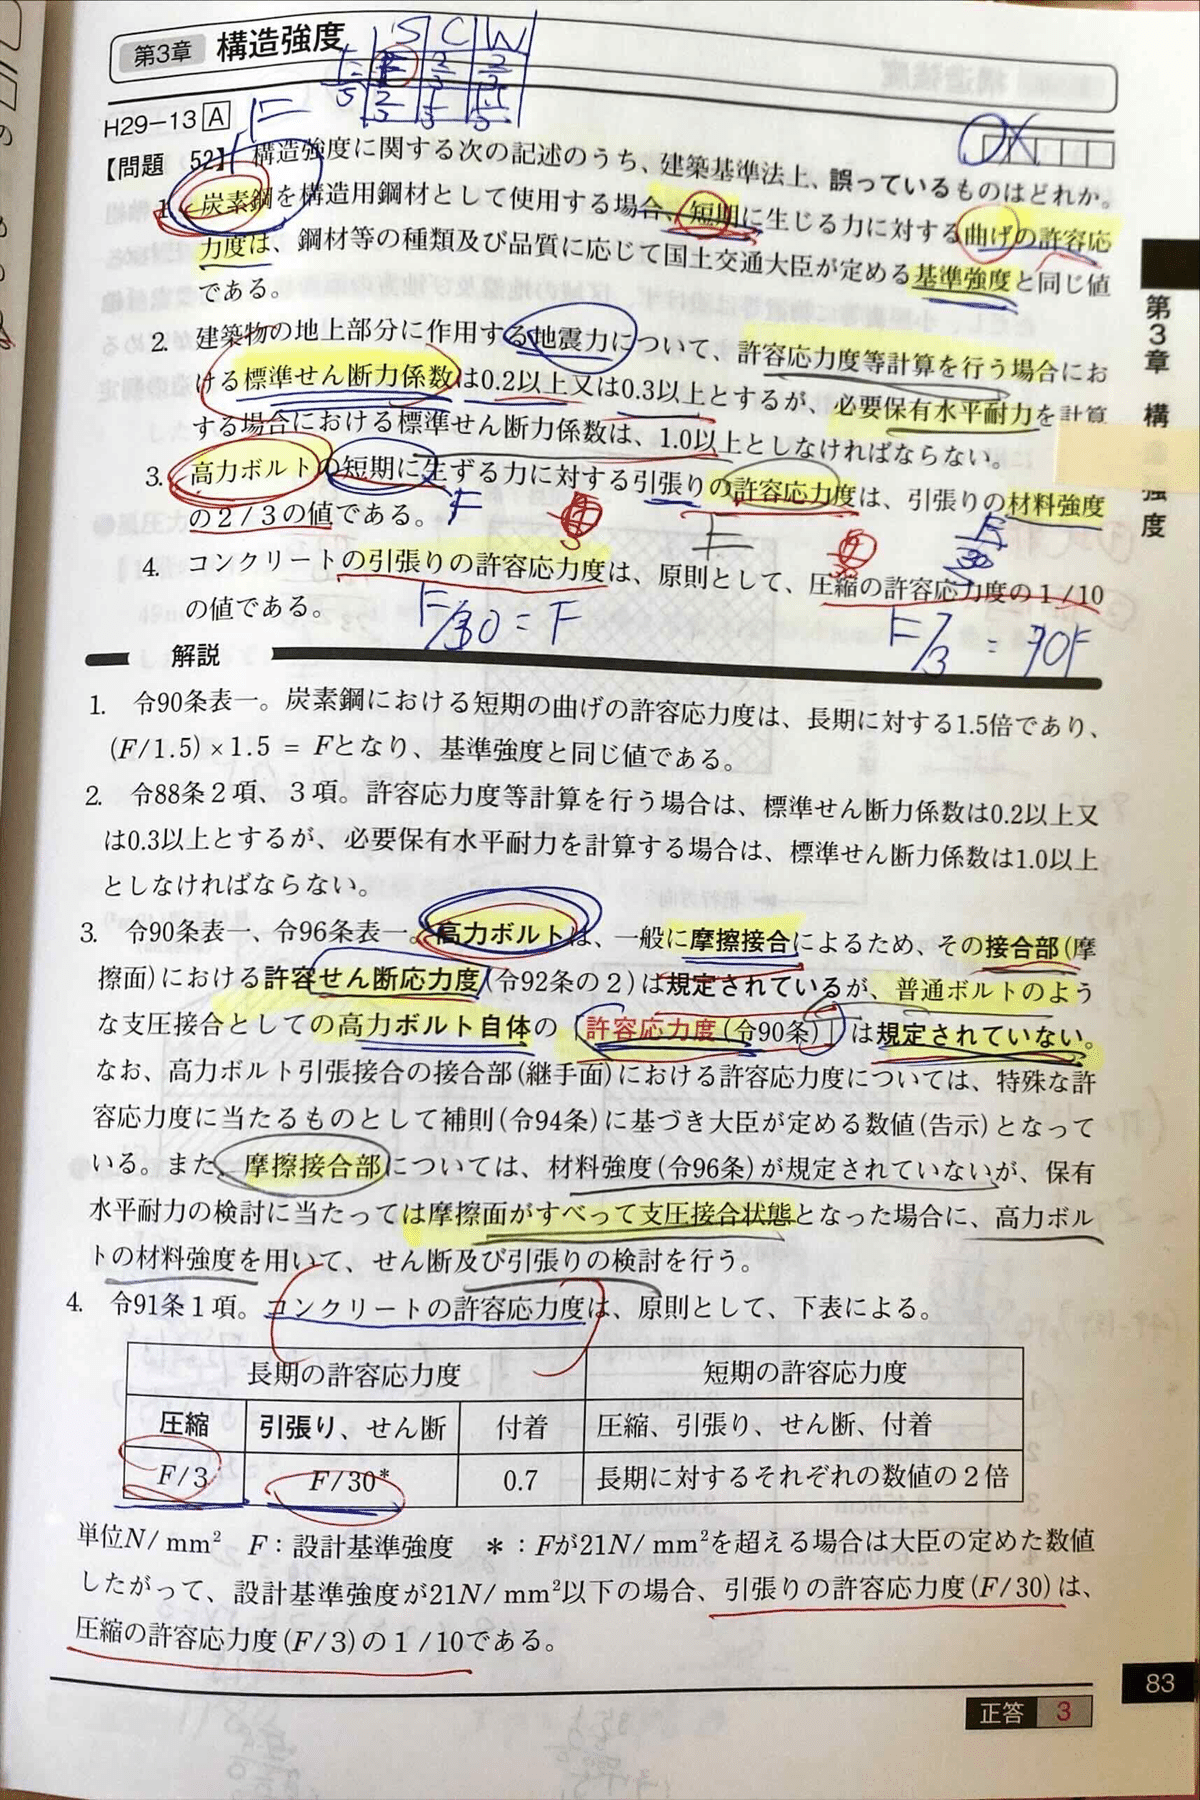 第3章 構造強度
S C W
H29-13 A
F
OX
【問題 52】 構造強度に関する次の記述のうち、建築基準法上、誤っているものはどれか。
1. 炭素鋼を構造用鋼材として使用する場合、短期に生じる力に対する曲げの許容応
力度は、鋼材等の種類及び品質に応じて国土交通大臣が定める基準強度と同じ値
である。
2. 建築物の地上部分に作用する地震力について、許容応力度等計算を行う場合にお
ける標準せん断力係数は0.2以上又は0.3以上とするが、必要保有水平耐力を計算
する場合における標準せん断力係数は、1.0以上としなければならない。
3. 高力ボルトの短期に生ずる力に対する引張りの許容応力度は、引張りの材料強度
の2/3の値である。
F
F
4. コンクリートの引張りの許容応力度は、原則として、圧縮の許容応力度の1/10
の値である。
F/30 = F
F/3 =
解説
1. 令90条表一。炭素鋼における短期の曲げの許容応力度は、長期に対する1.5倍であり、
(F/1.5)×1.5 = Fとなり、基準強度と同じ値である。
2. 令88条2項、3項。許容応力度等計算を行う場合は、標準せん断力係数は0.2以上又
は0.3以上とするが、必要保有水平耐力を計算する場合は、標準せん断力係数は1.0以上
としなければならない。
3. 令90条表一、令96条表一。高力ボルトは、一般に摩擦接合によるため、その接合部(摩
擦面)における許容せん断応力度(令92条の2)は規定されているが、普通ボルトのよう
な支圧接合としての高力ボルト自体の「許容応力度(令90条)」は規定されていない。
なお、高力ボルト引張接合の接合部(継手面)における許容応力度については、特殊な許
容応力度に当たるものとして補則(令94条)に基づき大臣が定める数値(告示)となって
いる。また、摩擦接合部については、材料強度(令96条)が規定されていないが、保有
水平耐力の検討に当たっては摩擦面がすべって支圧接合状態となった場合に、高力ボル
トの材料強度を用いて、せん断及び引張りの検討を行う。
4. 令91条1項。コンクリートの許容応力度は、原則として、下表による。
長期の許容応力度 短期の許容応力度
圧縮 引張り、せん断 付着 圧縮、引張り、せん断、付着
F/3 F/30* 0.7 長期に対するそれぞれの数値の2倍
単位N/mm² F:設計基準強度 *:Fが21N/mm²を超える場合は大臣の定めた数値
したがって、設計基準強度が21N/mm²以下の場合、引張りの許容応力度(F/30)は、
圧縮の許容応力度(F/3)の1/10である。
正答 3
83
第3章 構 強度